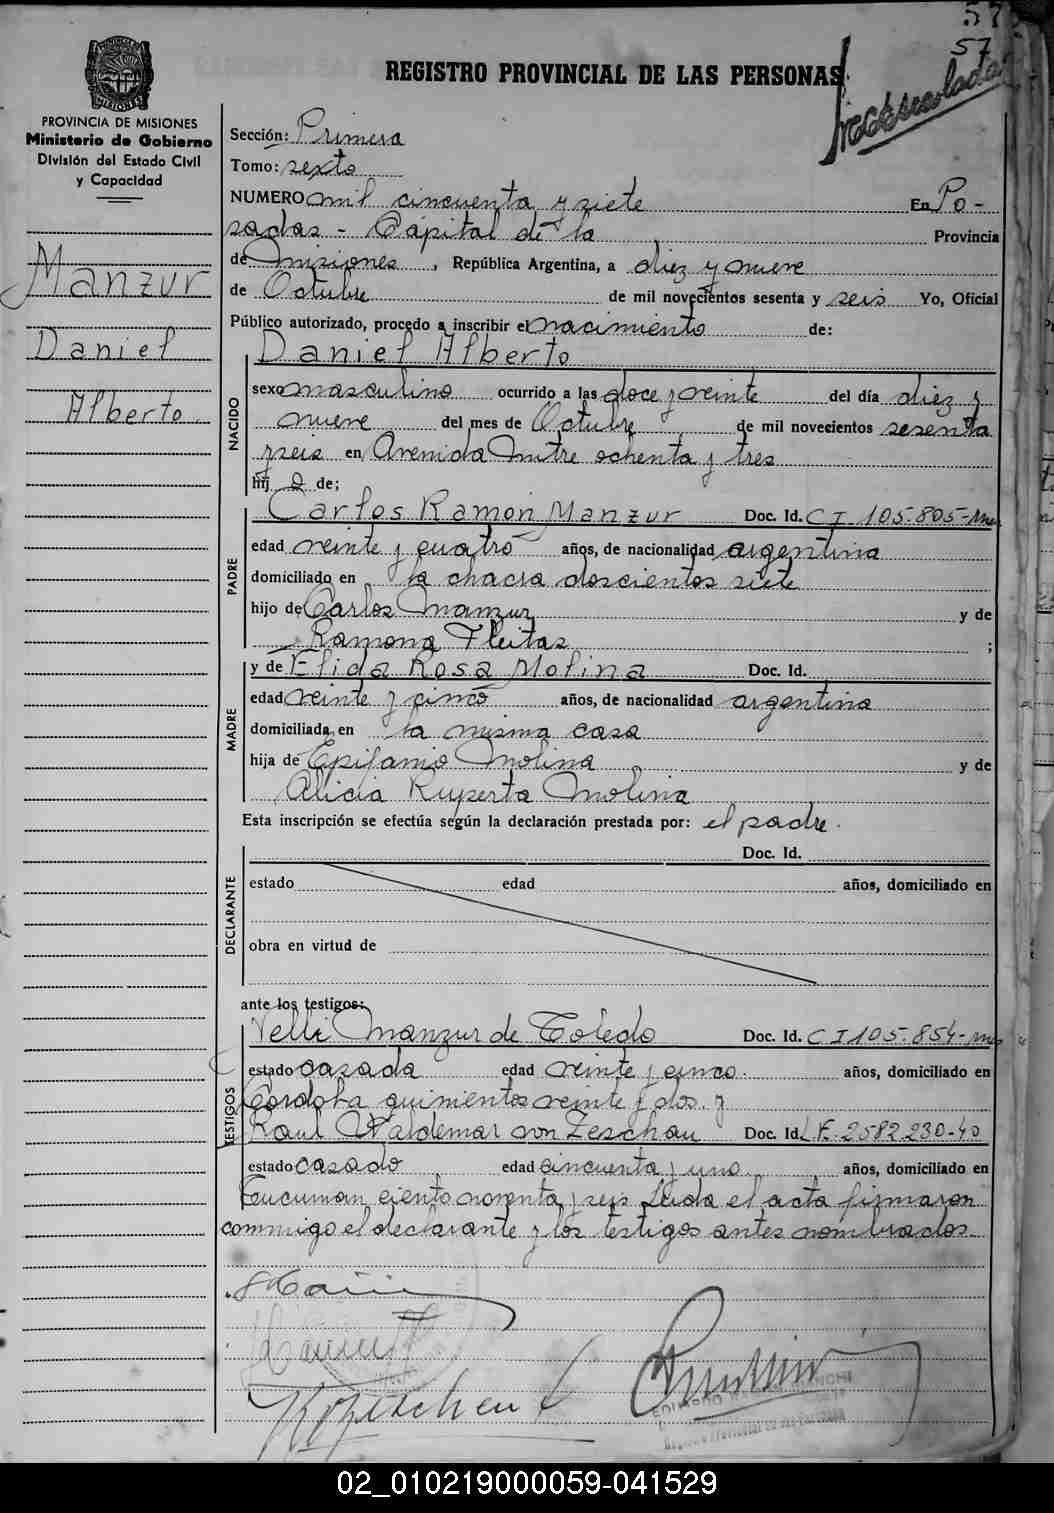 57
REGISTRO PROVINCIAL DE LAS PERSONAS
PROVINCIA DE MISIONES
Ministerio de Gobierno
División del Estado Civil
y Capacidad
Manzur
Daniel
Alberto
Sección: Primera
Tomo: sexto
NUMERO mil cincuenta y siete En Po-
sadas - Capital de la Provincia
de Misiones, República Argentina, a diez y nueve
de Octubre de mil novecientos sesenta y seis Yo, Oficial
Público autorizado, procedo a inscribir el nacimiento de:
Daniel Alberto
NACIDO
sexo masculino ocurrido a las doce y veinte del día diez y
nueve del mes de Octubre de mil novecientos sesenta
y seis en Avenida Mitre ochenta y tres
hij o de;
Carlos Ramon Manzur Doc. Id. C I 105.805-
PADRE
edad veinte y cuatro años, de nacionalidad argentina
domiciliado en la chacra doscientos siete
hijo de Carlos Manzur y de
Ramona Fleitas ;
y de Elida Rosa Molina Doc. Id.
MADRE
edad veinte y cinco años, de nacionalidad argentina
domiciliada en la misma casa
hija de Epifanio Molina y de
Alicia Ruperta Molina
Esta inscripción se efectúa según la declaración prestada por: el padre.
Doc. Id.
DECLARANTE
estado edad años, domiciliado en
obra en virtud de
ante los testigos:
Velli Manzur de Toledo Doc. Id. C I 105.854-
TESTIGOS
estado casada edad veinte y cinco. años, domiciliado en
Cordoba quinientos veinte y dos. y
Raul Waldemar von Zeschau Doc. Id. 2582230-40
estado casado edad cincuenta y uno años, domiciliado en
Tucuman ciento noventa y seis Leida el acta firmaron
conmigo el declarante y los testigos antes nombrados.
02_010219000059-041529